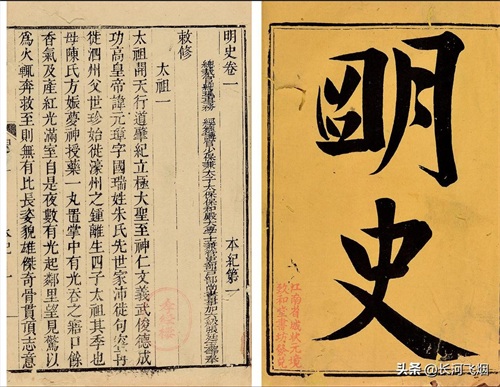 明史卷一 本紀第一
總裁官總理事務 經筵講官少保兼太子太保保和殿大學士兼管吏部戶部尚書事加六級張廷玉等奉
敕修
太祖一
太祖開天行道肇紀立極大聖至神仁文義武俊德成
功高皇帝諱元璋字國瑞姓朱氏先世家沛徙句容再
徙泗州父世珍始徙濠州之鍾離生四子太祖其季也
母陳氏方娠夢神授藥一丸置掌中有光吞之寤口餘
香氣及產紅光滿室自是夜數有光起鄰里望見驚以
為火輒奔救至則無有比長姿貌雄傑奇骨貫頂志意
朙史
头条 @长河飞烟